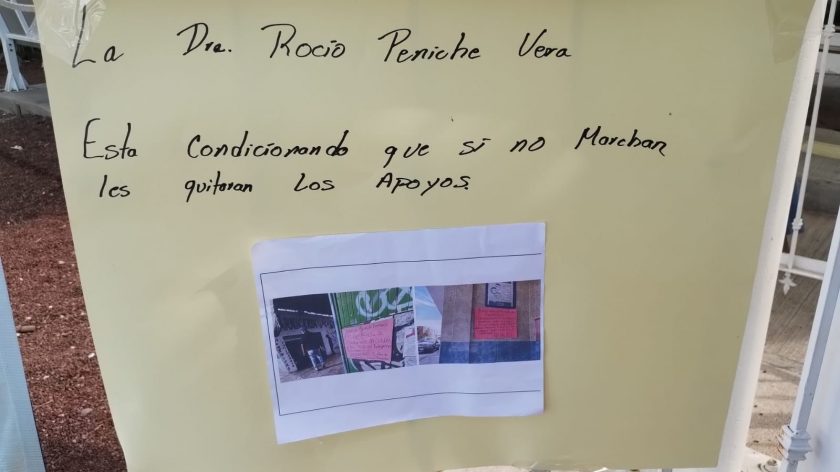 La Dra. Rocio Peniche Vera
Esta Condicionando que si no Marchan
les quitaran Los Apoyos.